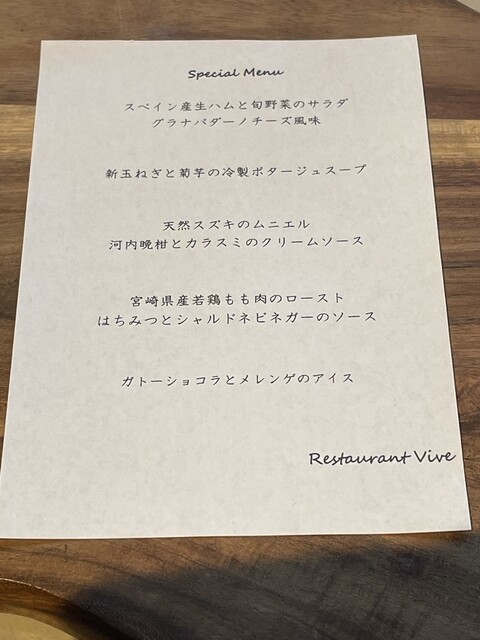 Special Menu
スペイン産生ハムと旬野菜のサラダ
グラナパダーノチーズ風味
新玉ねぎと菊芋の冷製ポタージュスープ
天然スズキのムニエル
河内晩柑とカラスミのクリームソース
宮崎県産若鶏もも肉のロースト
はちみつとシャルドネビネガーのソース
ガトーショコラとメレンゲのアイス
Restaurant Vive